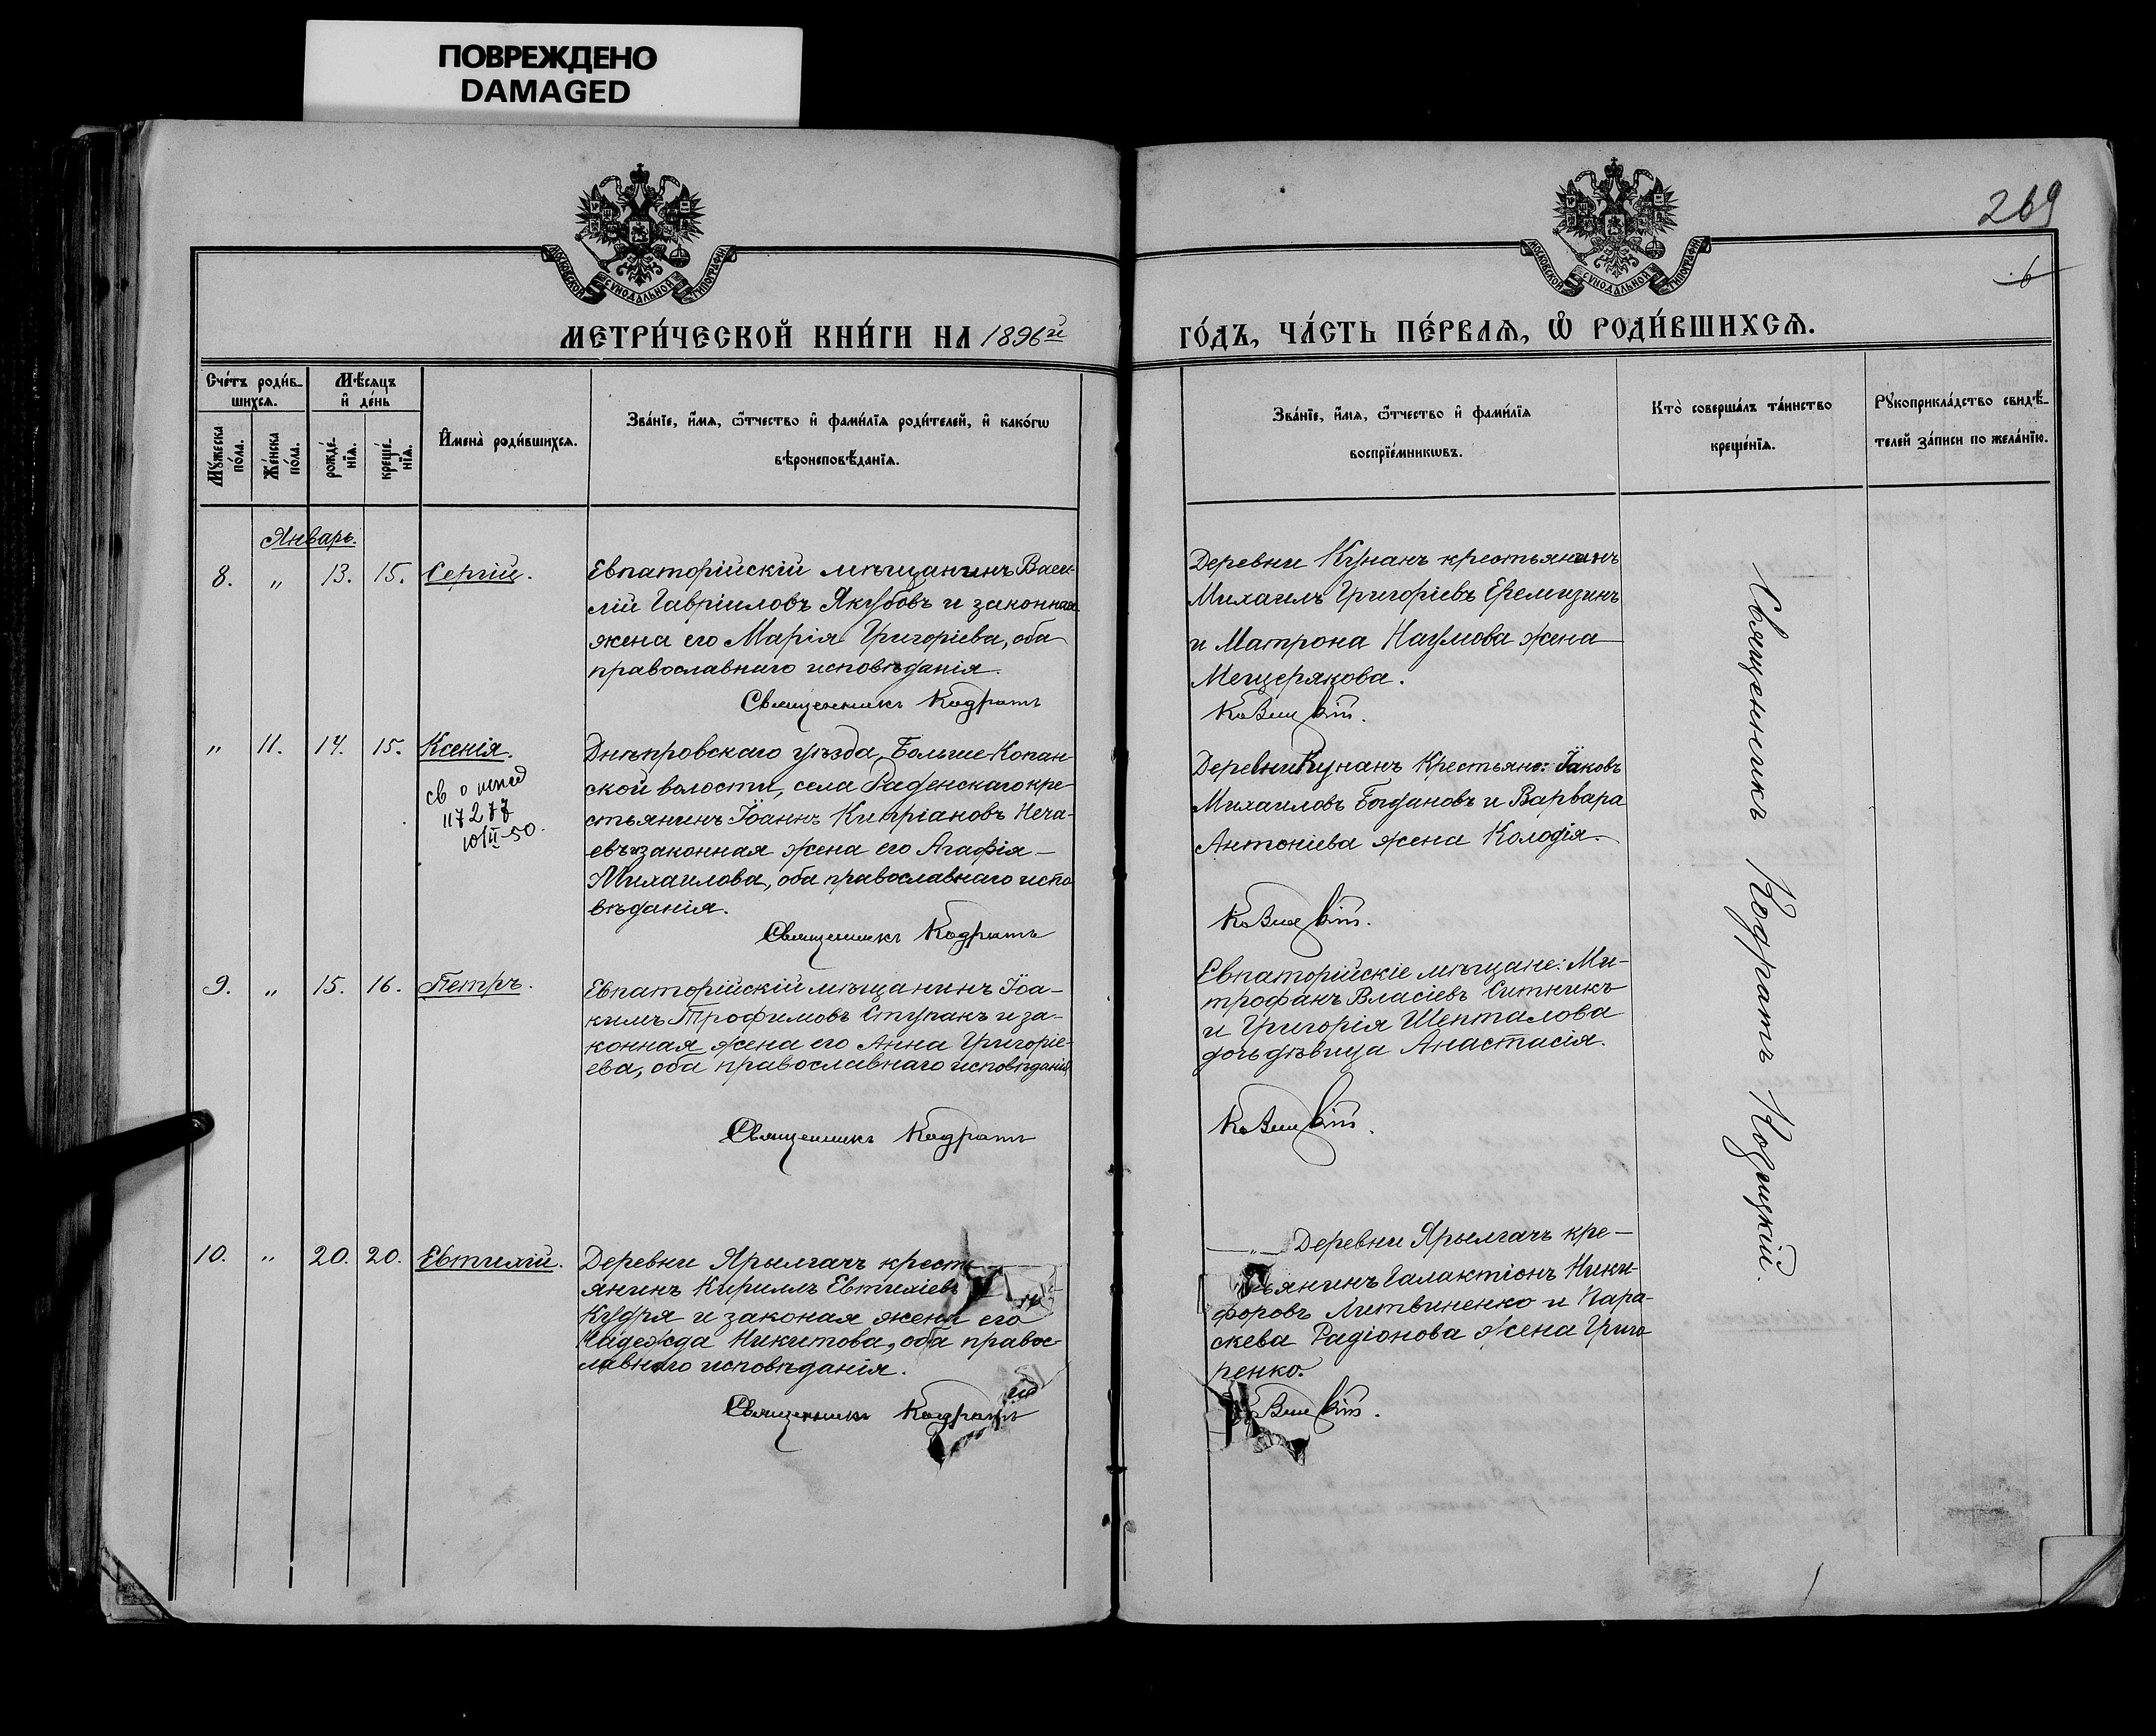 ПОВРЕЖДЕНО
DAMAGED
269
6
МЕТРИ́ЧЕСКОЙ КНИ́ГИ НА 1896й
ГО́ДЪ, ЧА́СТЬ ПЕ́РВАЯ, Ѡ҆ РОДИ́ВШИХСЯ.
МОСКОВСКОЙ СѴНОДАЛЬНОЙ ТИПОГРАФІИ
МОСКОВСКОЙ СѴНОДАЛЬНОЙ ТИПОГРАФІИ
Сче́тъ роди́в-
шихся.
Мѣ́сяцъ
и҆ де́нь
Мꙋжеска
по́ла.
Же́нска
по́ла.
рожде́-
нїя.
креще́-
нїя.
И҆мена̀ роди́вшихся.
Зва́нїе, и҆́мя, ѻ҆́тчество и҆ фами́лїя роди́телей, и҆ како́гѡ
вѣроисповѣ́данїя.
Зва́нїе, и҆́мя, ѻ҆́тчество и҆ фами́лїя
воспрїе́мникѡвъ.
Кто̀ соверша́лъ та́инство
креще́нїя.
Рꙋкоприкла́дство свидѣ́-
телей за́писи по жела́нїю.
Январь.
8. " 13. 15. Сергій.
Евпаторійскій мѣщанинъ Васи-
лій Гавріиловъ Якубовъ и законная
жена его Марія Григоріева, оба
православнаго исповѣданія.
Священникъ Кодратъ
Деревни Кунанъ крестьянинъ
Михаилъ Григоріевъ Еремизинъ
и Матрона Наумова жена
Мещерякова.
" 11. 14. 15. Ксенія.
св о
117277
10/II-50.
Днѣпровскаго уѣзда, Больше-Копан-
ской волости, села Раденскаго кре-
стьянинъ Іоаннъ Кипріановъ Неча-
евъ и законная жена его Агафія
Михаилова, оба православнаго испо-
вѣданія.
Священникъ Кодратъ
Деревни Кунанъ крестьяне: Іаковъ
Михаиловъ Богдановъ и Варвара
Антоніева жена Колодія.
9. " 15. 16. Петръ.
Евпаторійскій мѣщанинъ Іоа-
кимъ Трофимовъ Ступакъ и за-
конная жена его Анна Григоріе-
ева, оба православнаго исповѣданія
Священникъ Кодратъ
Евпаторійскіе мѣщане: Ми-
трофанъ Власіевъ Ситникъ
и Григорія Шепталова
дочь дѣвица Анастасія.
10. " 20. 20. Евтихій.
Деревни Ярылгачъ кресть
янинъ Кириллъ Евтихіевъ
Кудря и законая жена его
Надежда Никитова, оба правос-
лавнаго исповѣданія.
Священникъ Кодратъ
" Деревни Ярылгачъ кре-
тьянинъ Галактіонъ Ники-
форовъ Литвиненко и Пара-
скева Радіонова жена Григо
ренко.
Священникъ Кодратъ Козицкій.